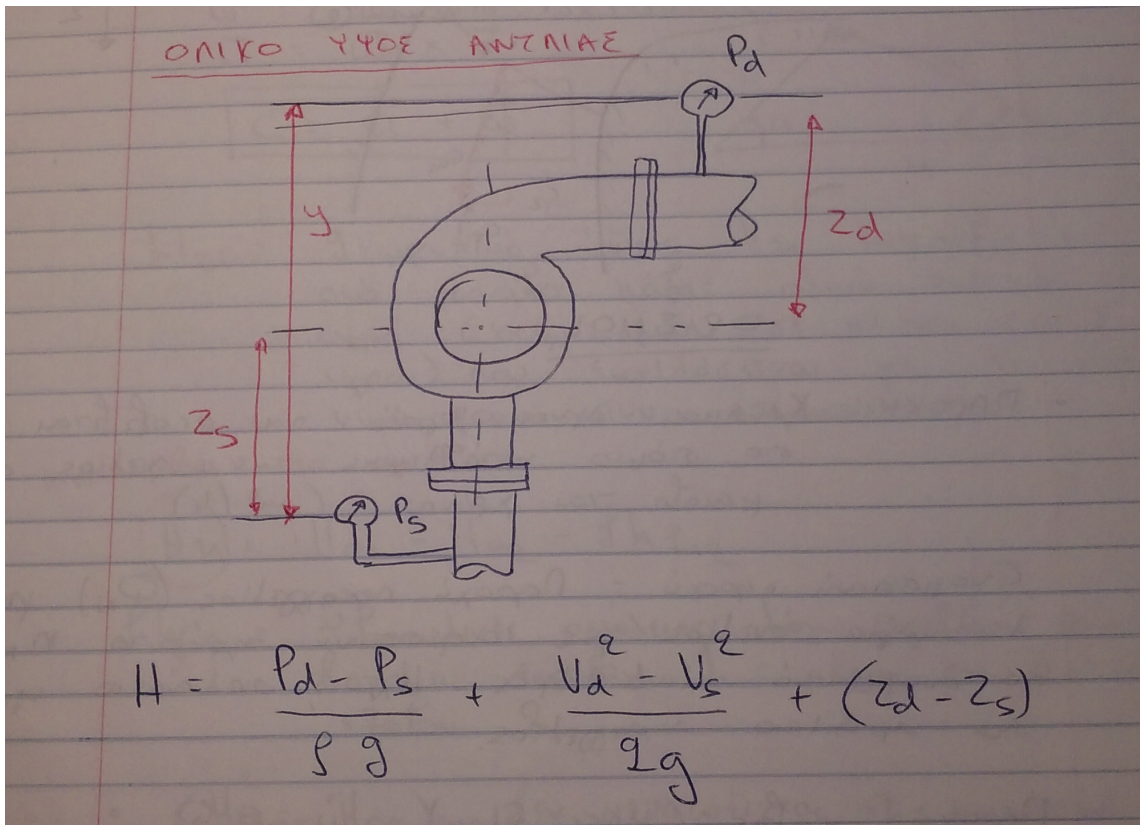 ΟΛΙΚΟ ΥΨΟΣ ΑΝΤΛΙΑΣ
Pd
y
zd
zs
Ps
H = Pd - Ps / ρ g + Vd² - Vs² / 2g + (zd - zs)